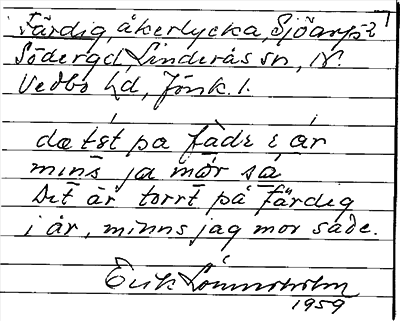 Färdig, åkerlycka, Sjöarp 2 1
Södergd Linderås sn, N.
Vedbo hd, Jönk. l.
dæ tét pa fàdɛ i ár
mins ja mor sa
Det är torrt på Färdig
i år, minns jag mor sade.
Erik Lönnerholm
1959